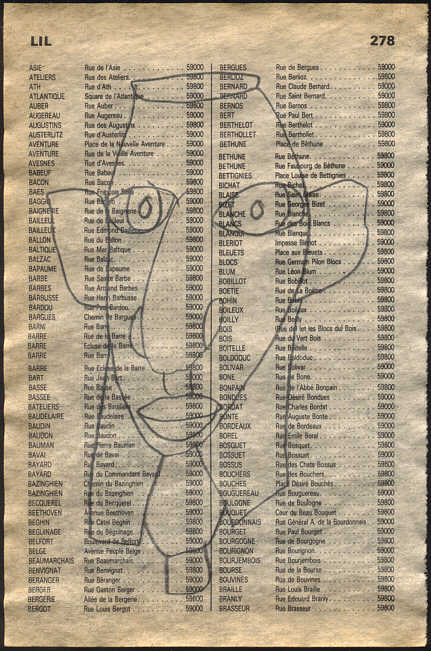 LIL 278
ASIE Rue de l'Asie 59000
ATELIERS Rue des Ateliers 59800
ATH Rue d'Ath 59800
ATLANTIQUE Square de l'Atlantique 59000
AUBER Rue Auber 59800
AUGEREAU Rue Augereau 59000
AUGUSTINS Rue des Augustins 59800
AUSTERLITZ Rue d'Austerlitz 59000
AVENTURE Place de la Nouvelle Aventure 59000
AVENTURE Rue de la Vieille Aventure 59000
AVESNES Rue d'Avesnes 59000
BABEUF Rue Babeuf 59000
BACON Rue Bacon 59000
BAES Rue 59800
BAGGIO Rue 59000
BAIGNERIE Rue de la Baignerie 59000
BAILLEUL Rue de Bailleul
BAILLEUX Rue Edmond
BALLON Rue du Ballon 59800
BALTIQUE Rue Mer Baltique 59000
BALZAC Rue Balzac 59000
BAPAUME Rue de Bapaume 59000
BARBE Rue Sainte Barbe 59000
BARBES Rue Armand Barbes 59000
BARBUSSE Rue Henri Barbusse 59000
BARDOU Rue Bardou 59000
BARGUES Chemin de Bargues
BARNI Rue Barni
BARRE Rue de la Barre 59800
BARRE Ecluse de la Barre
BARRE Rue
BARRE Rue Ecluse de la Barre
BART Rue Jean Bart
BASSE Rue Basse
BASSEE Rue de la Bassée
BATELIERS Rue des Bateliers
BAUDELAIRE Rue Baudelaire
BAUDIN Rue Baudin
BAUDON Rue Baudon
BAUMAN Rue Pierre Bauman
BAVAI Rue de Bavai
BAYARD Rue Bayard 59000
BAYARD Rue du Commandant Bayard 59000
BAZINGHIEN Chemin du Bazinghien 59000
BAZINGHIEN Rue du Bazinghien 59000
BECQUEREL Rue du Becquerel 59800
BEETHOVEN Avenue Beethoven 59000
BEGHIN Cité Béghin 59800
BEGUINAGE Rue du Béguinage 59800
BELFORT Boulevard de Belfort 59000
BELGE Avenue Peuple Belge 59800
BEAUMARCHAIS Rue Beaumarchais 59000
BENVIGNAT Rue Benvignat 59000
BERANGER Rue Béranger 59000
BERGER Rue Gaston Berger 59000
BERGERIE Allée de la Bergerie 59000
BERGOT Rue Louis Bergot 59000
BERGUES Rue de Bergues 59000
BERLIOZ Rue Berlioz 59000
BERNARD Rue Claude Bernard 59000
BERNARD Rue Saint Bernard 59000
BERNOS Rue Bernos 59800
BERT Rue Paul Bert 59000
BERTHELOT Rue Berthelot 59000
BERTHOLLET Rue Berthollet 59000
BETHUNE Place de Béthune 59800
BETHUNE Rue Béthune 59800
BETHUNE Rue Faubourg de Béthune 59000
BETTIGNIES Place Louise de Bettignies 59800
BICHAT Rue Bichat
BLAISE Rue Saint Blaise
BIZET Rue Georges Bizet 59000
BLANCHE Rue Blanche 59800
BLANCS Rue des Bois Blancs
BLANQUI Rue Blanqui
BLERIOT Impasse Blériot 59000
BLEUETS Place aux Bleuets 59800
BLOCS Rue Germain Pilon Blocs 59000
BLUM Rue Léon Blum 59000
BOBILLOT Rue Bobillot 59800
BOETIE Rue de La Boétie 59000
BOHIN Rue Bohin
BOILEUX Rue Boileux
BOILLY Rue Boilly
BOIS Rue des Blocs du Bois
BOIS Rue du Vert Bois 59800
BOITELLE Rue Boitelle 59800
BOLDODUC Rue Boldoduc 59800
BOLIVAR Rue Bolivar 59000
BONE Rue de Bône 59000
BONPAIN Rue de l'Abbé Bonpain 59800
BONDUES Rue Désiré Bondues 59000
BORDAT Rue Charles Bordat 59000
BONTE Rue Auguste Bonte 59000
BORDEAUX Rue de Bordeaux 59000
BOREL Rue Emile Borel 59000
BOSQUET Rue Bosquet 59000
BOSSUET Rue Bossuet 59000
BOSSUS Rue des Chats Bossus 59800
BOUCHERS Rue des Bouchers 59800
BOUCHES Place Désiré Bouchés 59800
BOUGUEREAU Rue Bouguereau 59000
BOULOGNE Rue de Boulogne 59000
BOUQUET Cour du Beau Bouquet 59000
BOURDONNAIS Rue Général A. de la Bourdonnais 59000
BOURGET Rue Paul Bourget 59000
BOURGOGNE Rue de Bourgogne 59800
BOURIGNON Rue Bourignon 59000
BOURJEMBOIS Rue Bourjembois 59800
BOURSE Rue de la Bourse 59800
BOUVINES Rue de Bouvines 59800
BRAILLE Rue Louis Braille 59800
BRANLY Rue Edouard Branly 59800
BRASSEUR Rue Brasseur 59800